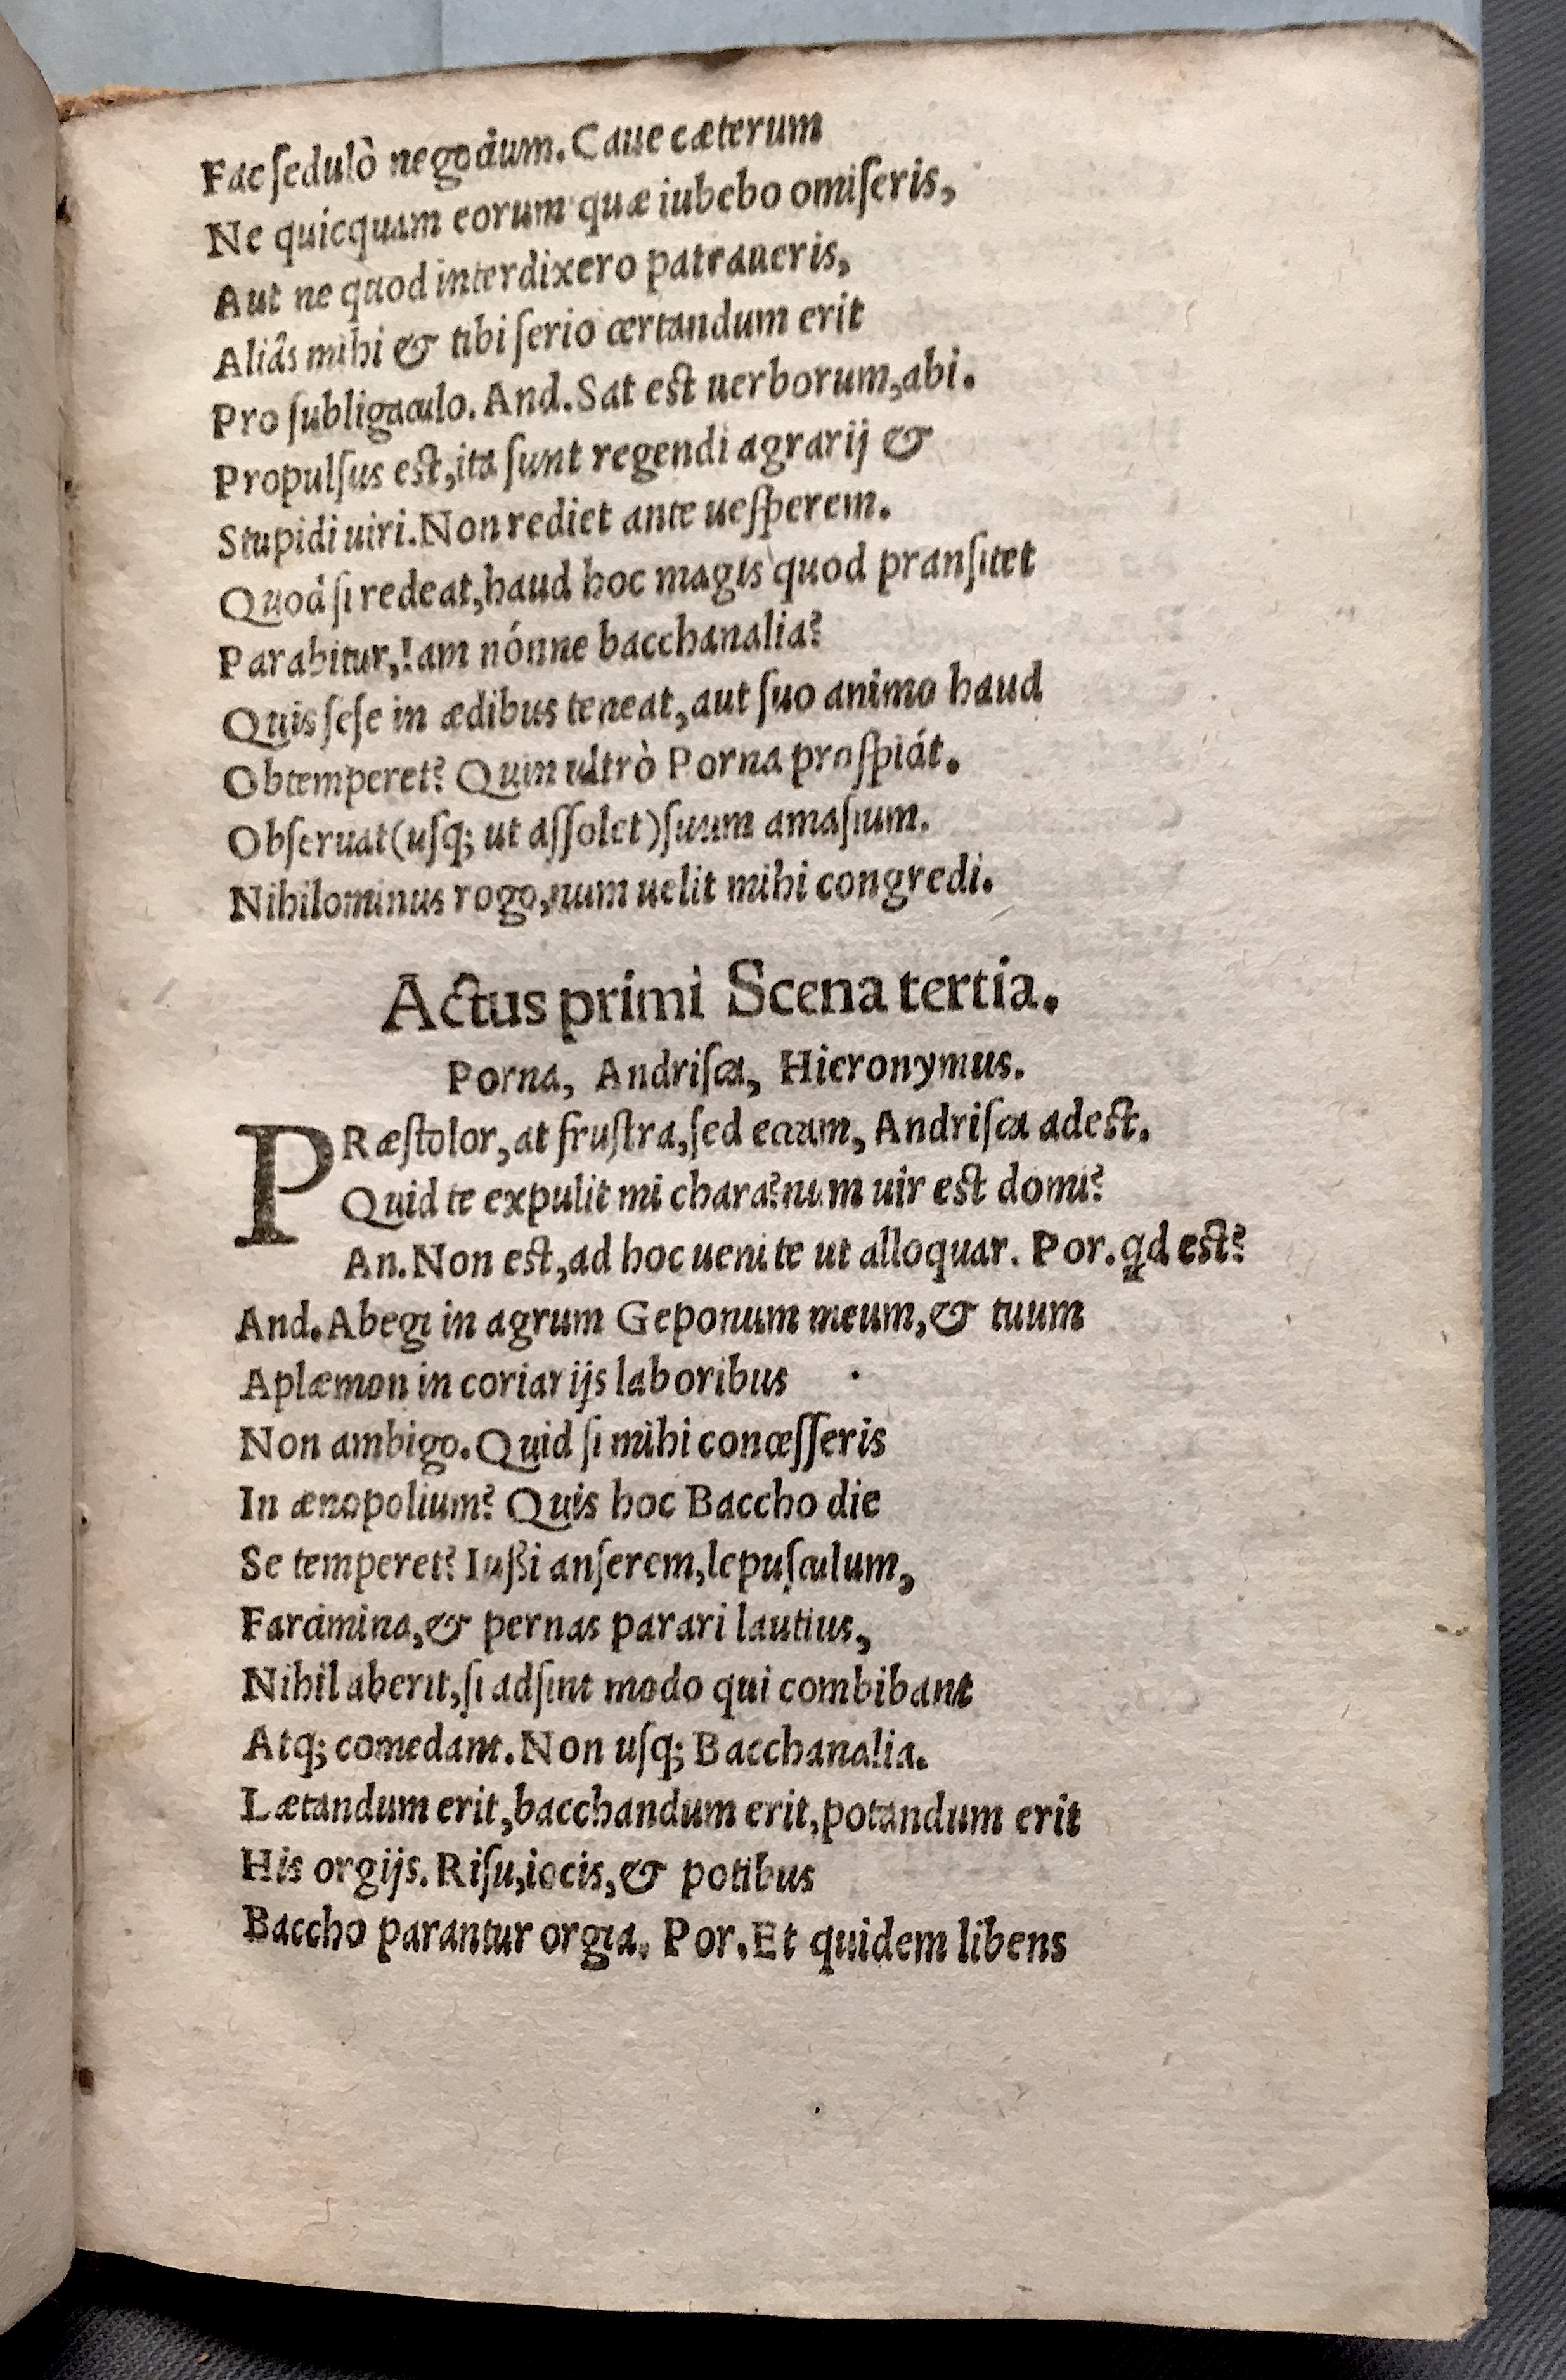 Fac ſedulò negocium. Caue cæterum
Ne quicquam eorum quæ iubebo omiſeris,
Aut ne quod interdixero patraueris,
Aliâs mihi & tibi ſerio certandum erit
Pro ſubligaculo. And. Sat est uerborum, abi.
Propulſus est, ita ſunt regendi agrarij &
Stupidi uiri. Non rediet ante ueſperem.
Quod ſi redeat, haud hoc magis quod pranſitet
Parabitur, Iam nónne bacchanalia?
Quis ſeſe in ædibus teneat, aut ſuo animo haud
Obtemperet? Quin ultrò Porna proſpiciát.
Obſeruat (uſq; ut aſſolet) ſuum amaſium.
Nihilominus rogo, num uelit mihi congredi.
Actus primi Scena tertia.
Porna, Andriſca, Hieronymus.
PRæſtolor, at fruſtra, ſed eccam, Andriſca adest.
Quid te expulit mi chara? num uir est domi?
An. Non est, ad hoc ueni te ut alloquar. Por. qd est?
And. Abegi in agrum Geponum meum, & tuum
Aplæmon in coriarijs laboribus
Non ambigo. Quid ſi mihi conceſſeris
In ænopolium? Quis hoc Baccho die
Se temperet? Iußi anſerem, lepuſculum,
Farcimina, & pernas parari lautius,
Nihil aberit, ſi adſint modo qui combibant
Atq; comedant. Non uſq; Bacchanalia.
Lætandum erit, bacchandum erit, potandum erit
His orgijs. Riſu, iocis, & potibus
Baccho parantur orgia. Por. Et quidem libens